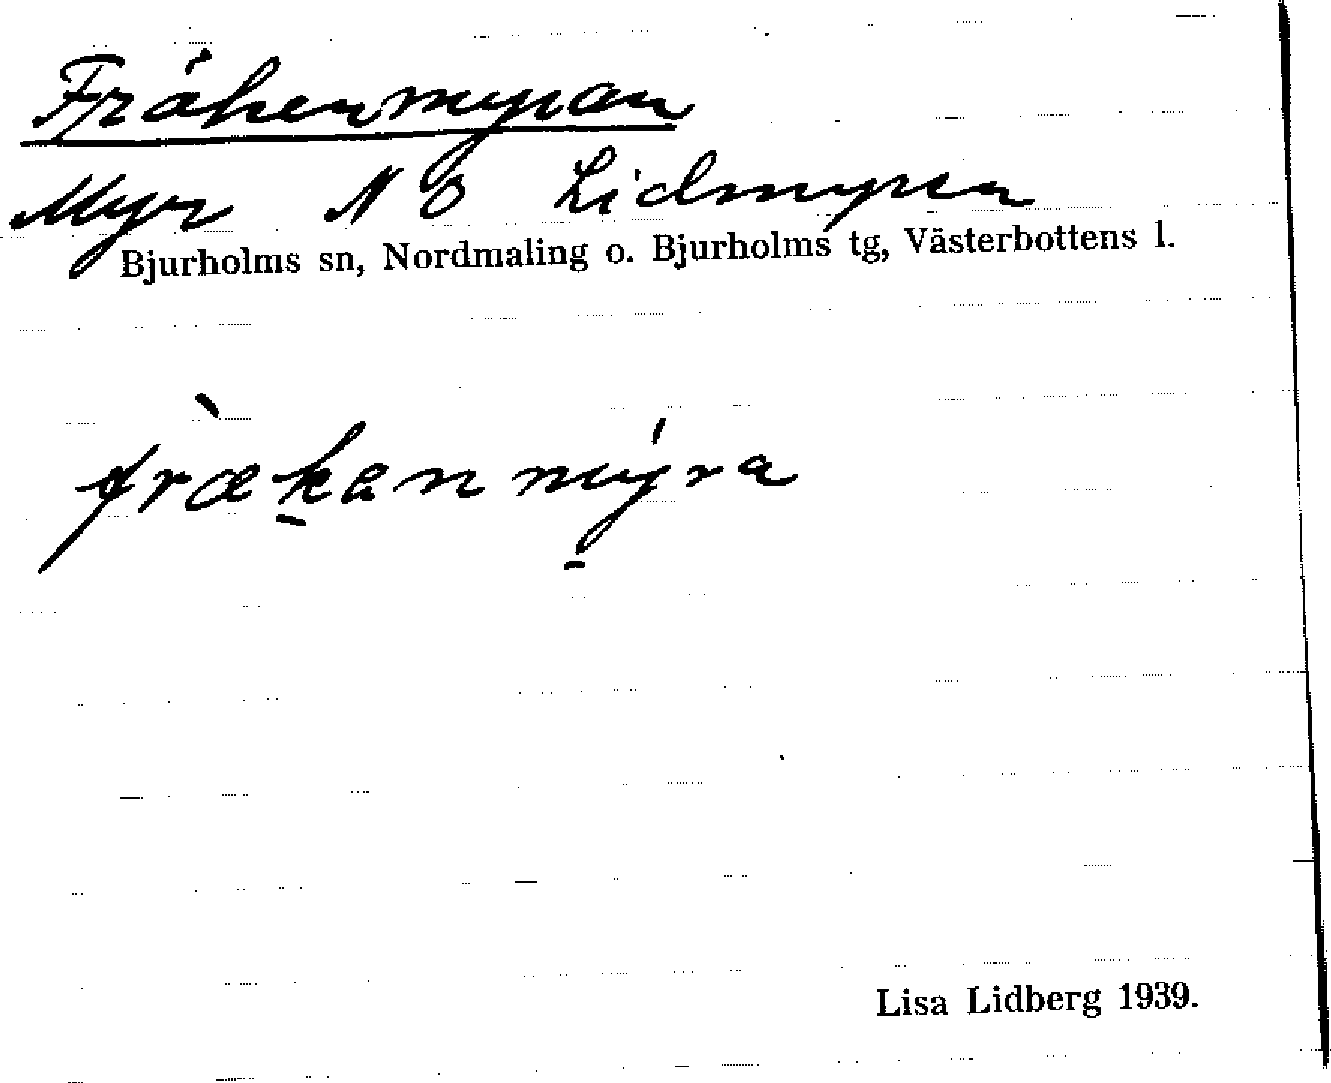 Fräkenmyran
Myr N O Lidmyran
Bjurholms sn, Nordmaling o. Bjurholms tg, Västerbottens l.
fræ̀kanmýra
Lisa Lidberg 1939.